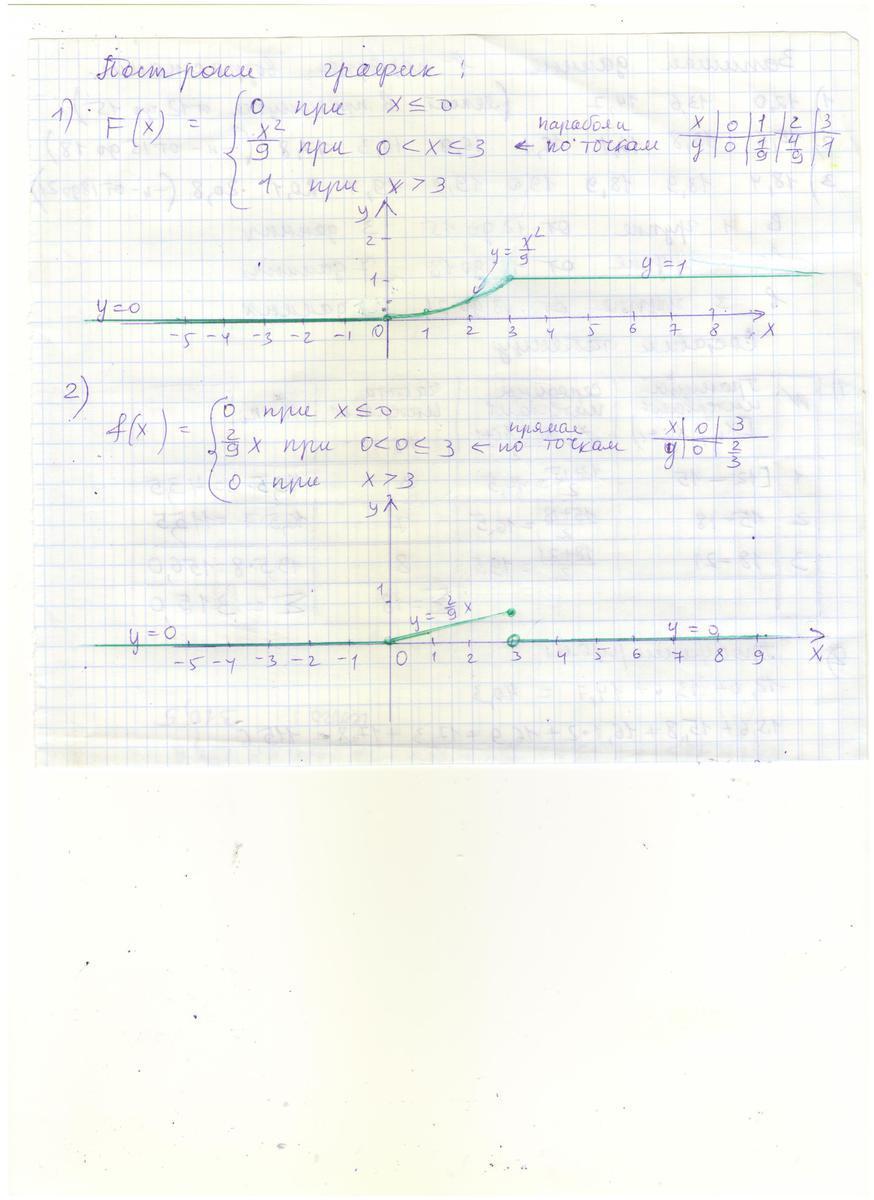 Построим график:
1) F(x) = { 0 при x ≤ 0
x²/9 при 0 < x ≤ 3 ← параболи по точкам
1 при x > 3
x | 0 | 1 | 2 | 3
y | 0 | 1/9 | 4/9 | 1
y
2
1
y = x²/9
y = 1
y = 0
-5 -4 -3 -2 -1 0 1 2 3 4 5 6 7 8 x
2) f(x) = { 0 при x ≤ 0
2/9 x при 0 < 0 ≤ 3 ← прямая по точкам
0 при x > 3
x | 0 | 3
y | 0 | 2/3
y
1
y = 2/9 x
y = 0
y = 0
-5 -4 -3 -2 -1 0 1 2 3 4 5 6 7 8 9 x